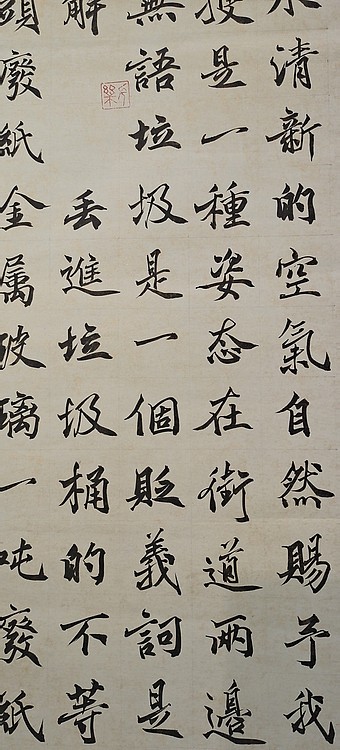 清新的空氣自然賜予我
是一種姿态在街道兩邊
無語垃圾是一個貶義詞是
解 丢進垃圾桶的不等
廢紙金属玻璃一吨廢紙